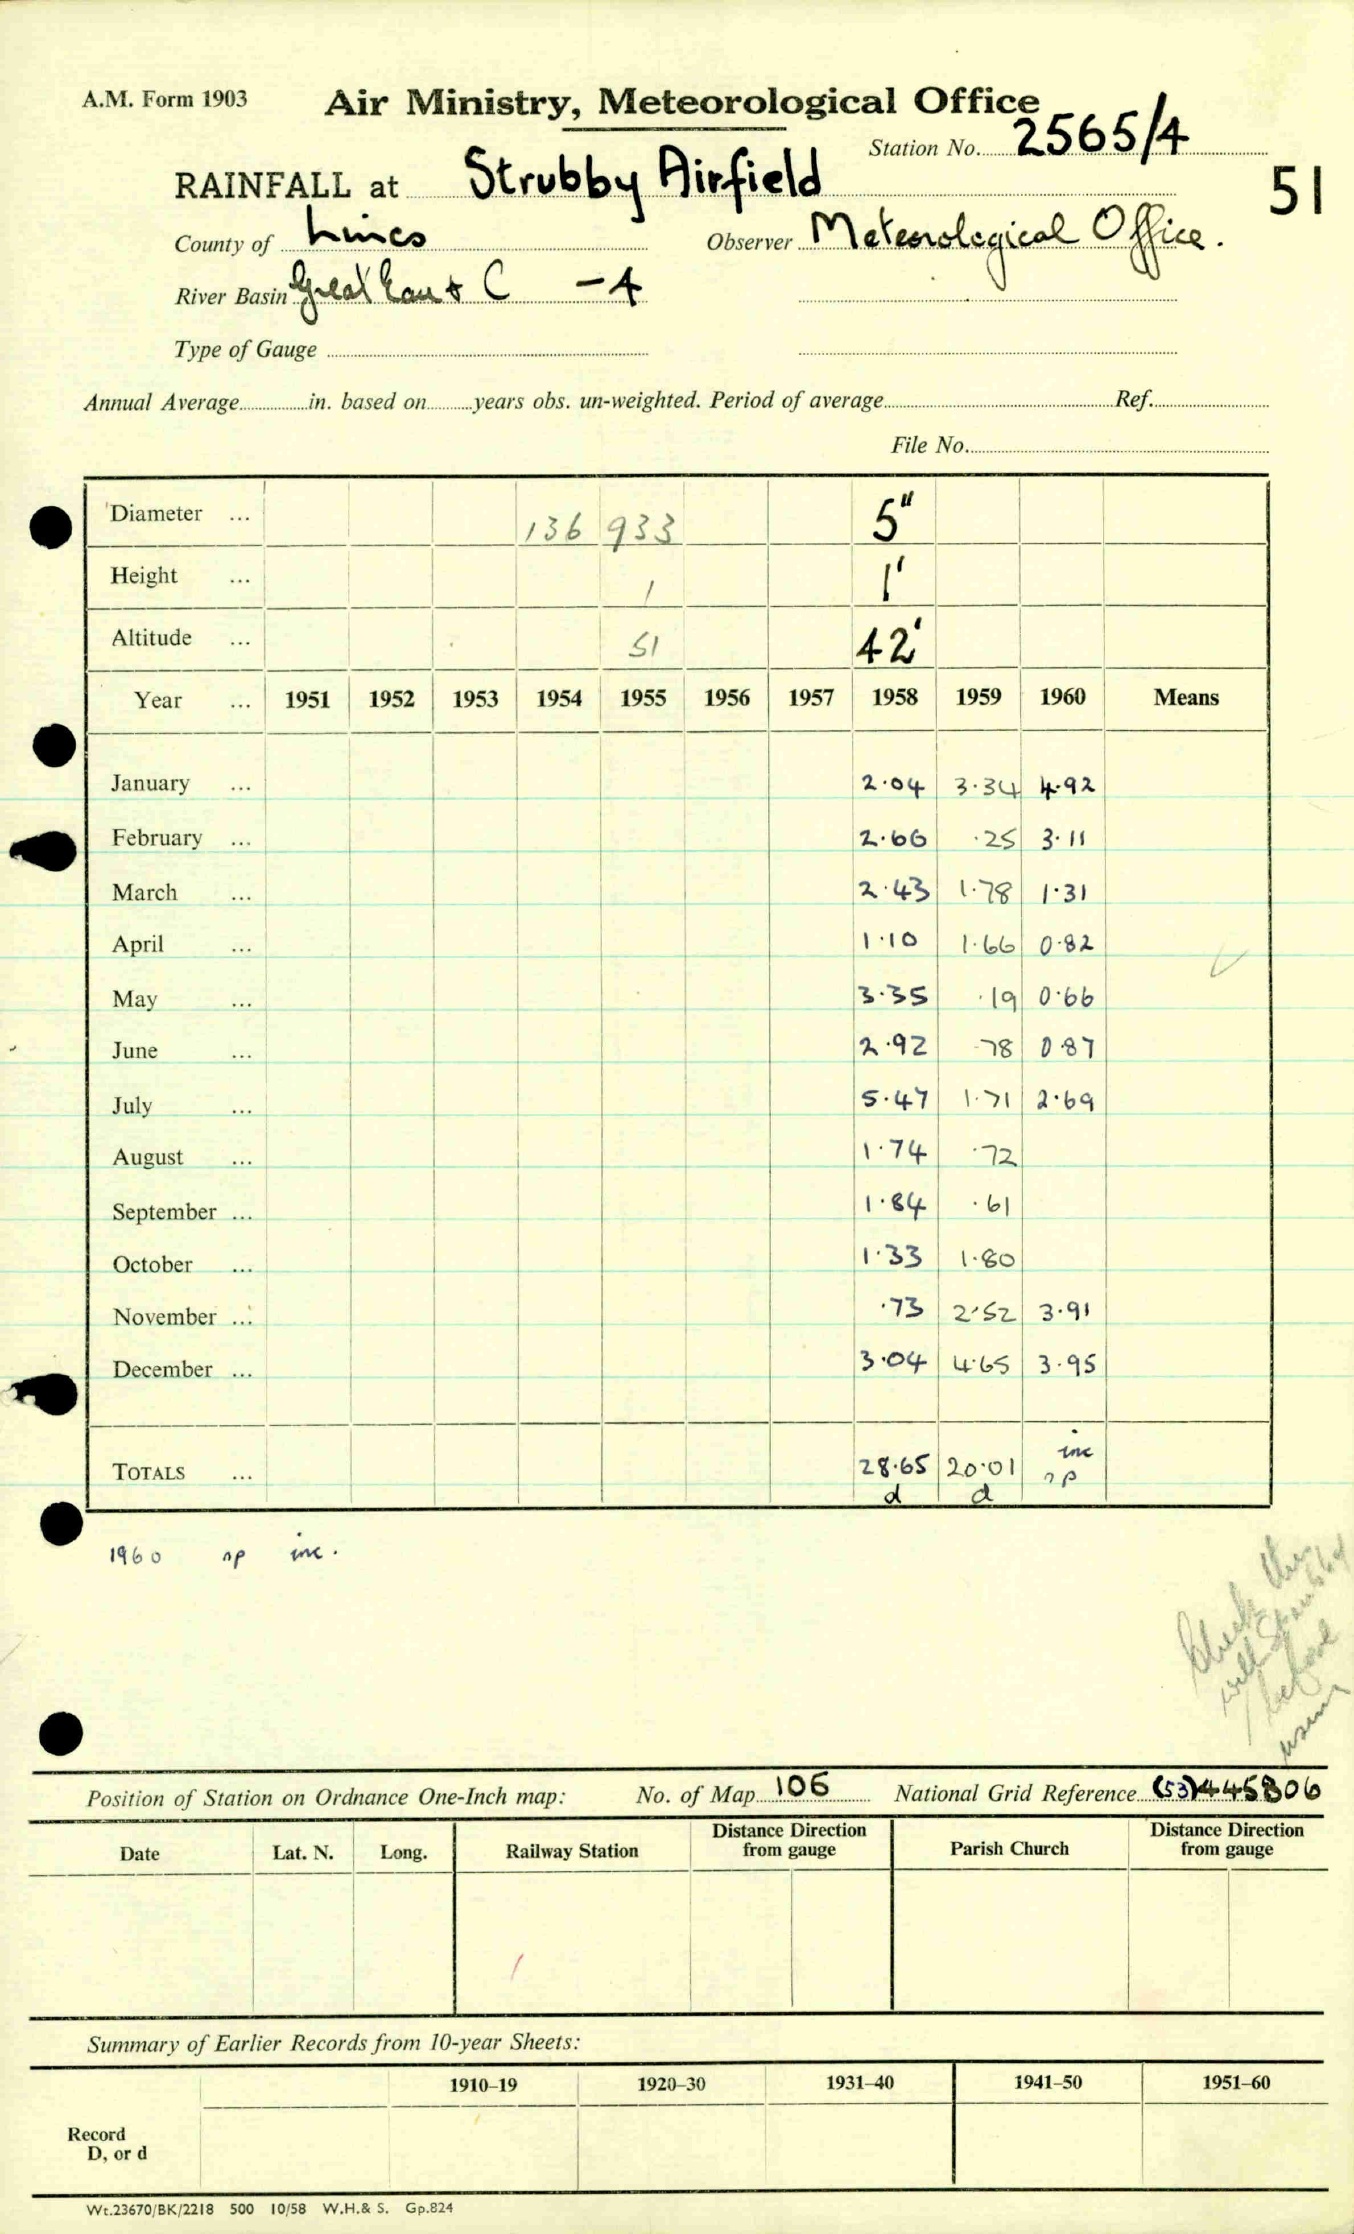 A.M. Form 1903
Air Ministry, Meteorological Office
Station No. 2565/4
51
RAINFALL at Strubby Airfield
County of Lincs
Observer Meteorological Office.
River Basin Great Eau & C -4
Type of Gauge
Annual Average in. based on years obs. un-weighted. Period of average Ref.
File No.
Diameter ... 136 933 5"
Height ... 1 1'
Altitude ... 51 42'
Year ... 1951 1952 1953 1954 1955 1956 1957 1958 1959 1960 Means
January ... 2.04 3.34 4.92
February ... 2.66 .25 3.11
March ... 2.43 1.78 1.31
April ... 1.10 1.66 0.82
May ... 3.35 .19 0.66
June ... 2.92 .78 0.87
July ... 5.47 1.71 2.69
August ... 1.74 .72
September ... 1.84 .61
October ... 1.33 1.80
November ... .73 2.52 3.91
December ... 3.04 4.65 3.95
TOTALS ... 28.65 20.01 inc
d d np
1960 np inc.
Check this
will
before
using
Position of Station on Ordnance One-Inch map: No. of Map 106 National Grid Reference (53)445806
Date Lat. N. Long. Railway Station Distance Direction from gauge Parish Church Distance Direction from gauge
Summary of Earlier Records from 10-year Sheets:
1910–19 1920–30 1931–40 1941–50 1951–60
Record
D, or d
Wt.23670/BK/2218 500 10/58 W.H.& S. Gp.824